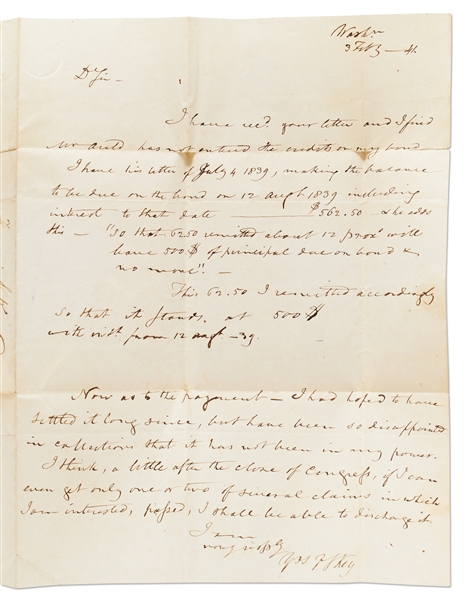 Washn
3 Feb — 41.
Dr Sir —
I have recd. your letter and I find
Mr Auld has not entered the credits on my bond
I have his letter of July 4 1839, making the balance
to be due on the bond on 12 augt 1839 including
interest to that date — $562.50 — & he adds
this — "So that 62.50 remitted about 12 proxo will
leave 500$ of principal due on bond &
no more". —
This 62.50 I remitted accordingly
So that it stands at 500$
with intt. from 12 augt — 39.
Now as to the payment — I had hoped to have
settled it long since, but have been so disappointed
in collections that it has not been in my power.
I think, a little after the close of Congress, if I can
even get only one or two of several claims in which
I am interested, passed, I shall be able to discharge it
I am
very respy
Yrs F S Key